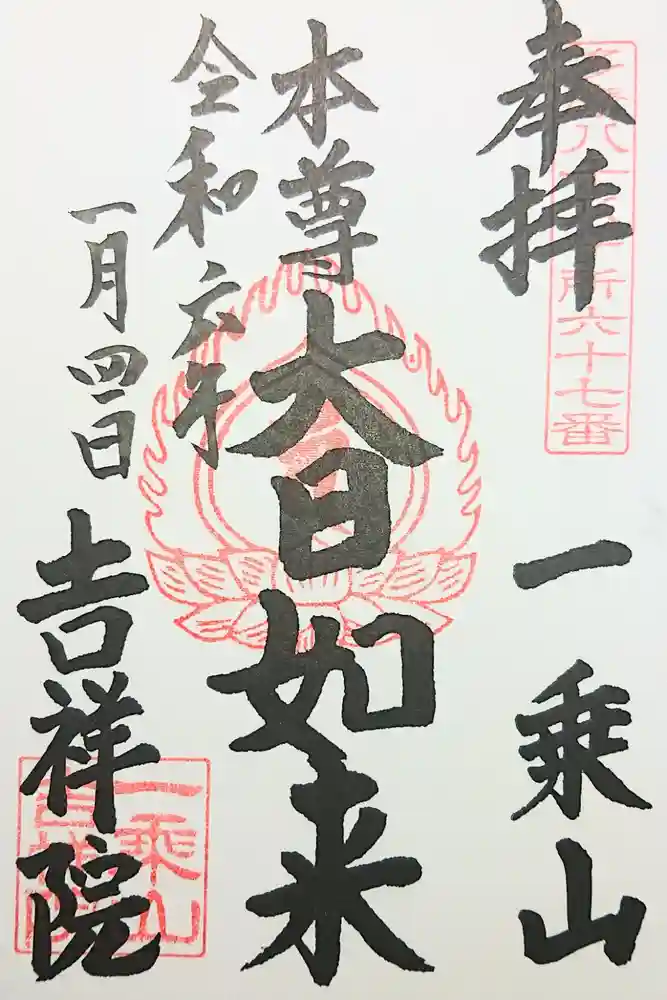 奉拝
所六十七番
一乗山
本尊大日如来
令和六年
一月四日
吉祥院
一乗山